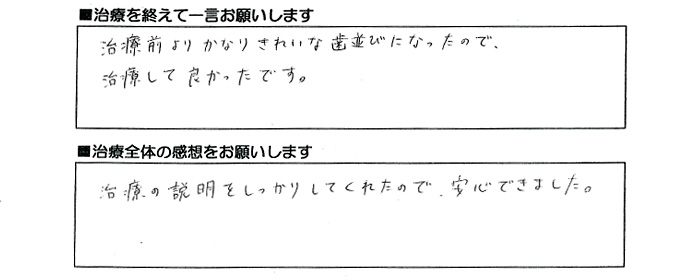 ■治療を終えて一言お願いします
治療前よりかなりきれいな歯並びになったので、
治療して良かったです。
■治療全体の感想をお願いします
治療の説明をしっかりしてくれたので、安心できました。